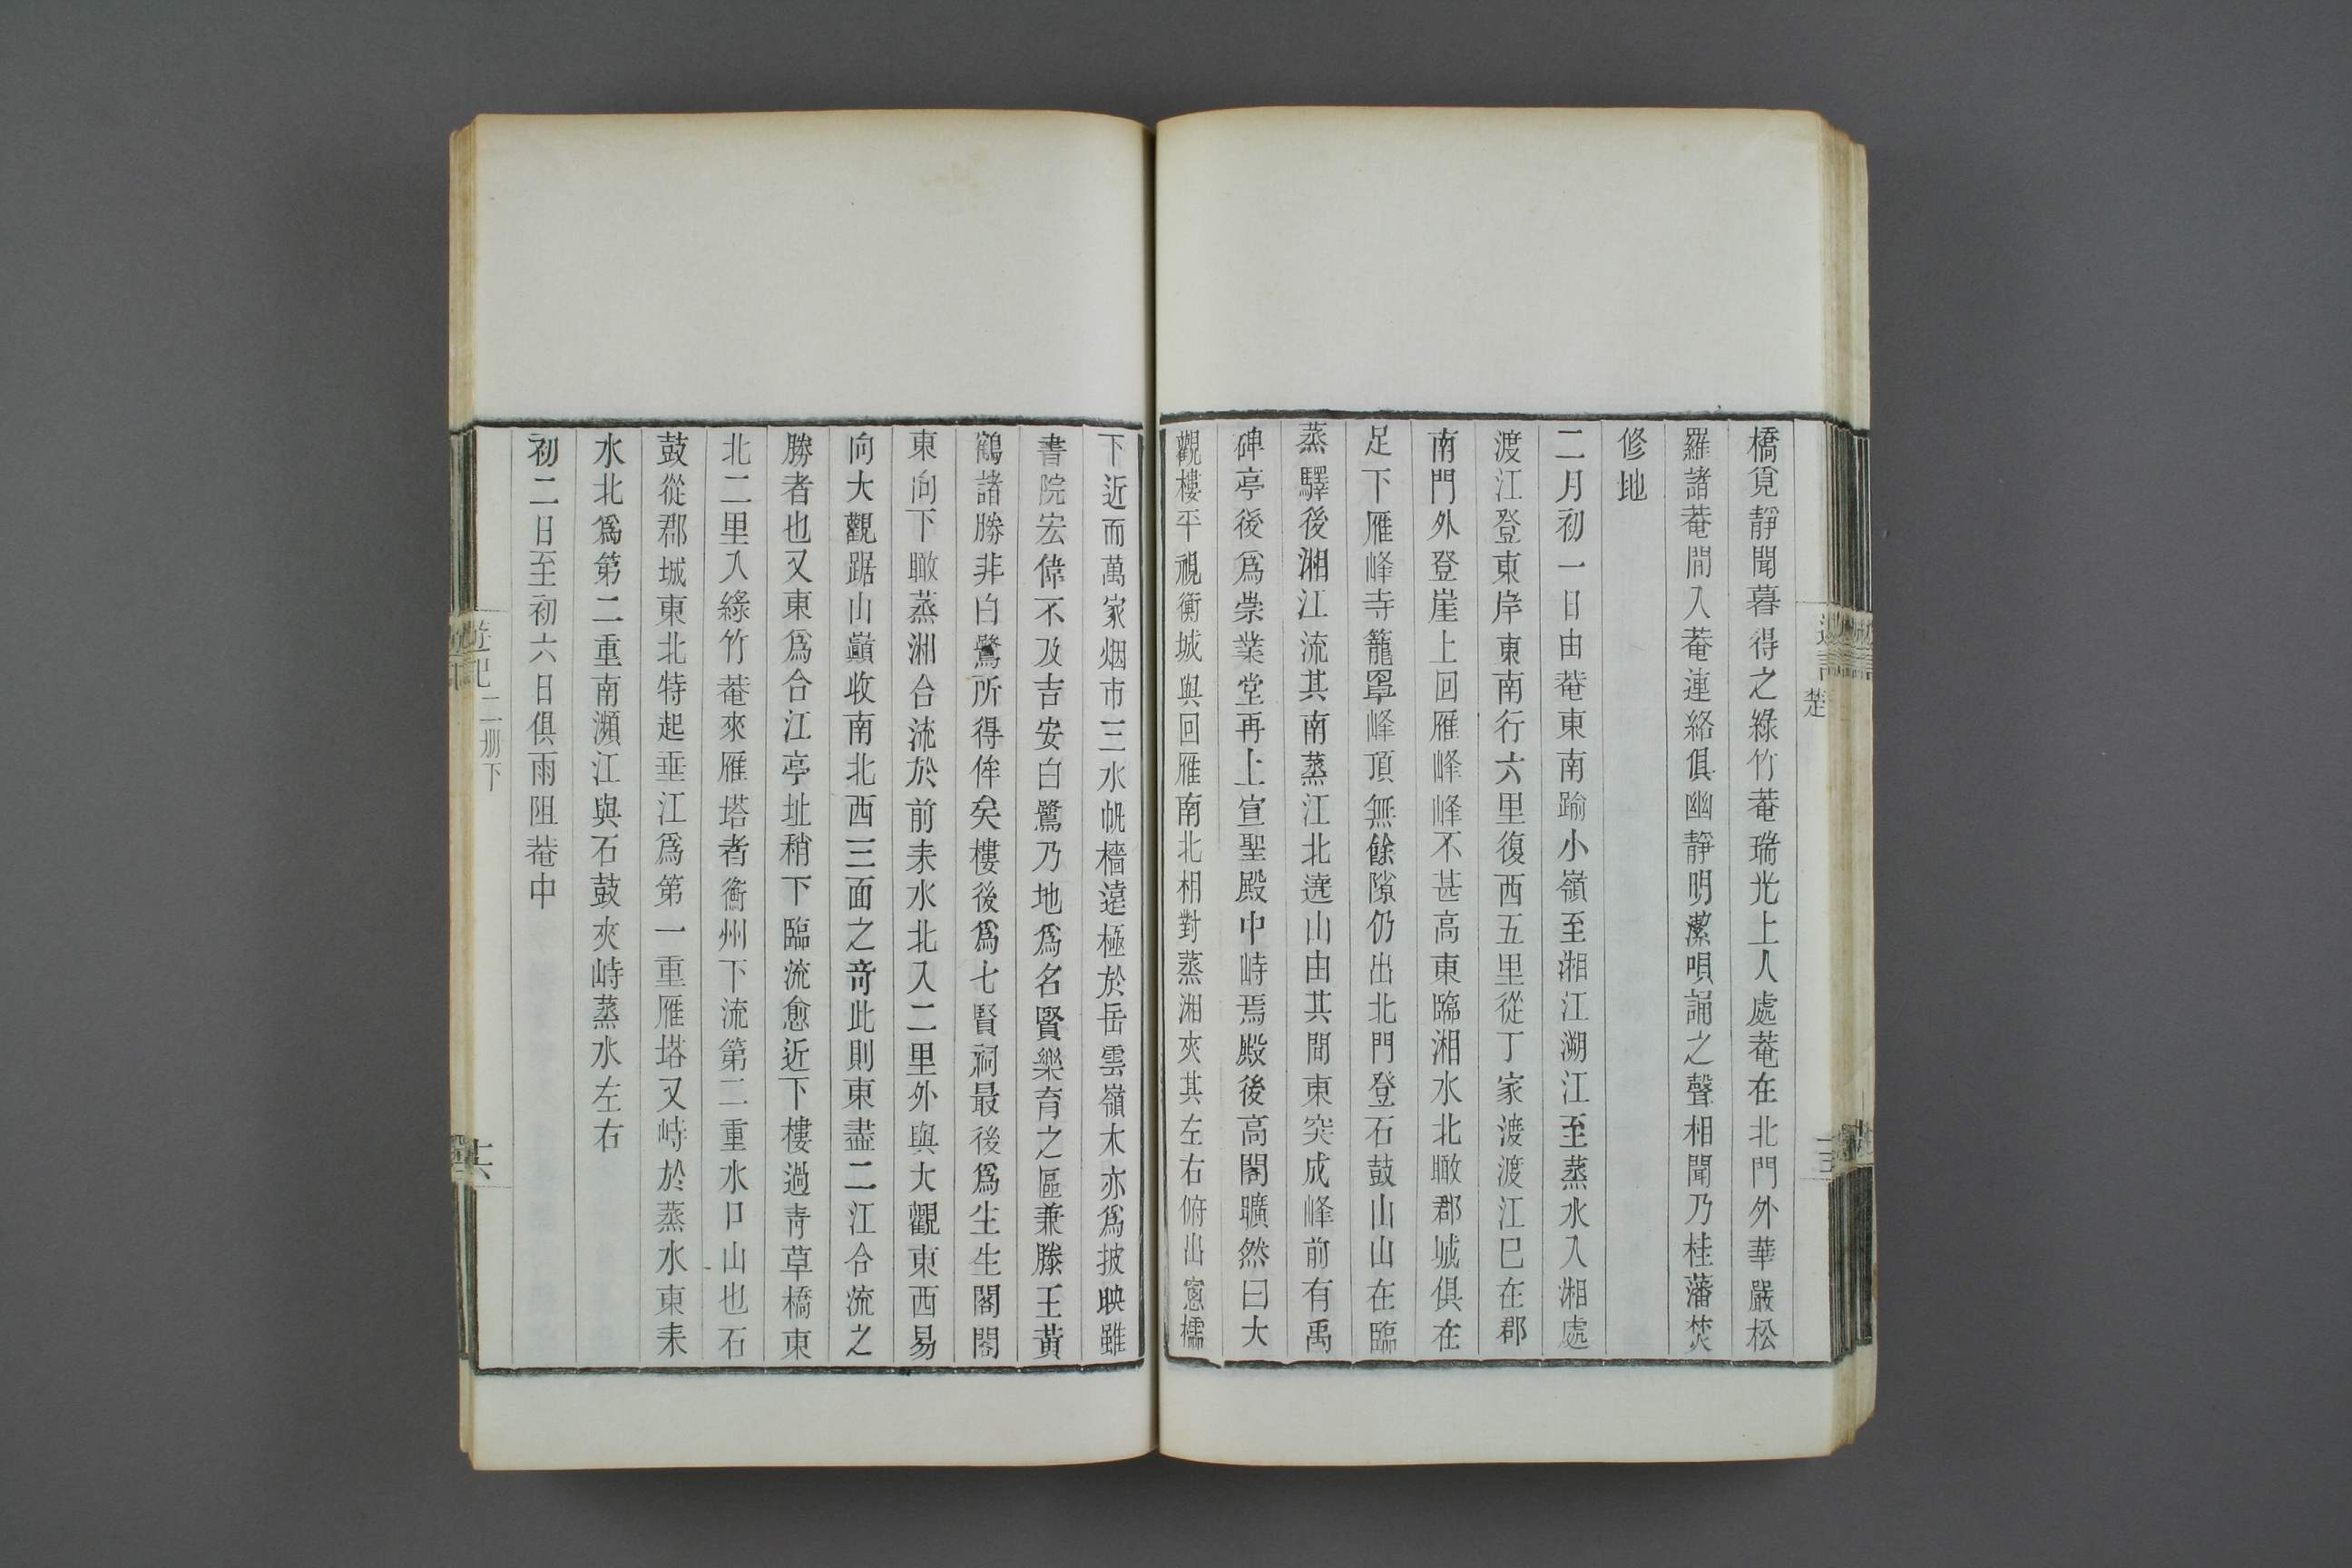 橋覓靜聞暮得之綠竹菴瑞光上人處菴在北門外華嚴松
羅諸菴間入菴連絡俱幽靜明潔唄誦之聲相聞乃桂藩焚
修地
二月初一日由菴東南踰小嶺至湘江溯江至蒸水入湘處
渡江登東岸東南行六里復西五里從丁家渡渡江已在郡
南門外登崖上回雁峰峰不甚高東臨湘水北瞰郡城俱在
足下雁峰寺籠罩峰頂無餘隙仍出北門登石鼓山山在臨
蒸驛後湘江流其南蒸江北遶山由其間東突成峰前有禹
碑亭後爲崇業堂再上宣聖殿中峙焉殿後高閣曠然曰大
觀樓平視衡城與回雁南北相對蒸湘夾其左右俯出窻櫺
下近而萬家烟市三水帆檣遠極於岳雲嶺木亦爲披映雖
書院宏偉不及吉安白鷺乃地爲名賢樂育之區兼滕王黃
鶴諸勝非白鷺所得侔矣樓後爲七賢祠最後爲生生閣閣
東向下瞰蒸湘合流於前耒水北入二里外與大觀東西易
向大觀踞山巔收南北西三面之奇此則東盡二江合流之
勝者也又東爲合江亭址稍下臨流愈近下樓過青草橋東
北二里入綠竹菴來雁塔者衡州下流第二重水口山也石
鼓從郡城東北特起垂江爲第一重雁塔又峙於蒸水東耒
水北爲第二重南瀕江與石鼓夾峙蒸水左右
初二日至初六日俱雨阻菴中
遊記 二册下
十六
楚